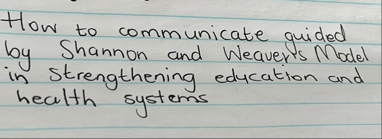 How to communicate guided
by Shannon and Weaver's Model
in strengthening education and
health systems